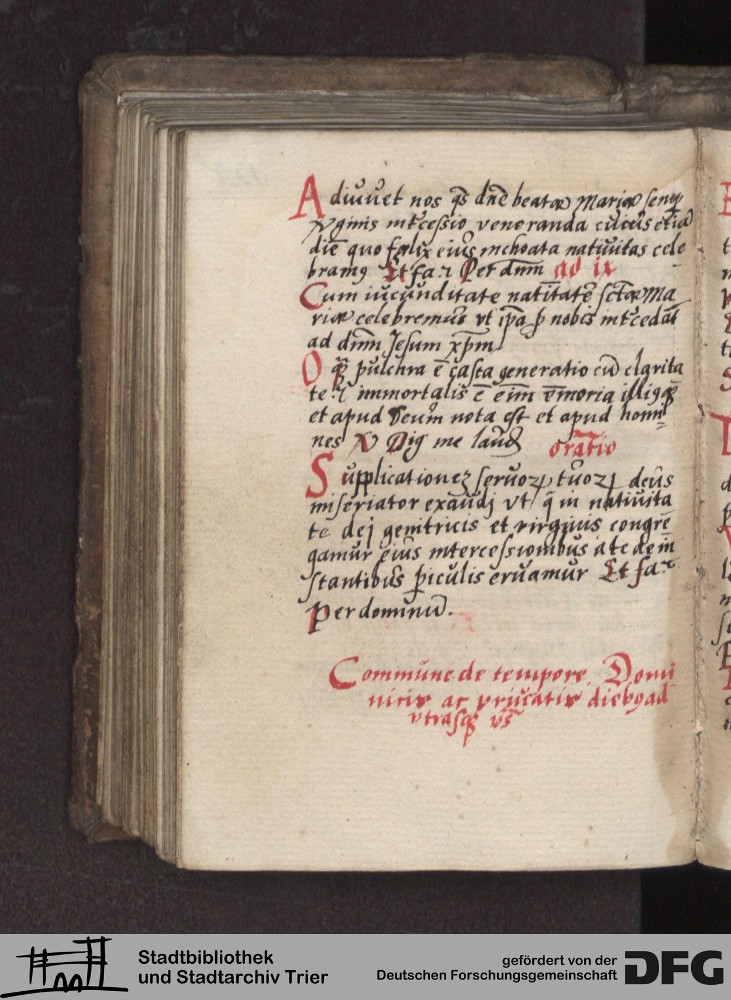 Adiuuet nos qs̄ dn̄e beatæ Mariæ semꝑ
Vginis int̄cessio veneranda cuius etiā
diē quo fælix eius inchoata natiuitas cele
bramꝰ Et fa⁊ Per dnm̄ ad ix
Cum iucunditate natitatē sctæ Ma
riæ celebremus vt ip̄a ꝓ nobis int̄cedat
ad dnm̄ Jesum xp̄m
O q̄ pulchra ē casta generatio cū clarita
te ⁊ immortalis ē eim̄ memoria illiꝰ
et apud Deum nota est et apud homi
nes V Dig me laud oratio
Supplicationez seruoꝝ tuoꝝ deus
miseriator exaudj vt q̄ in natiuita
te dej genitricis et virginis congre
gamur eius intercessionibus a te de in
stantibus ꝑiculis eruamur Et fa⁊
Per dominū.
Commune de tempore Domi
nicis ac priuatis diebꝰ ad
vtrasꝗ vs̄
Stadtbibliothek
und Stadtarchiv Trier
gefördert von der
Deutschen Forschungsgemeinschaft
DFG